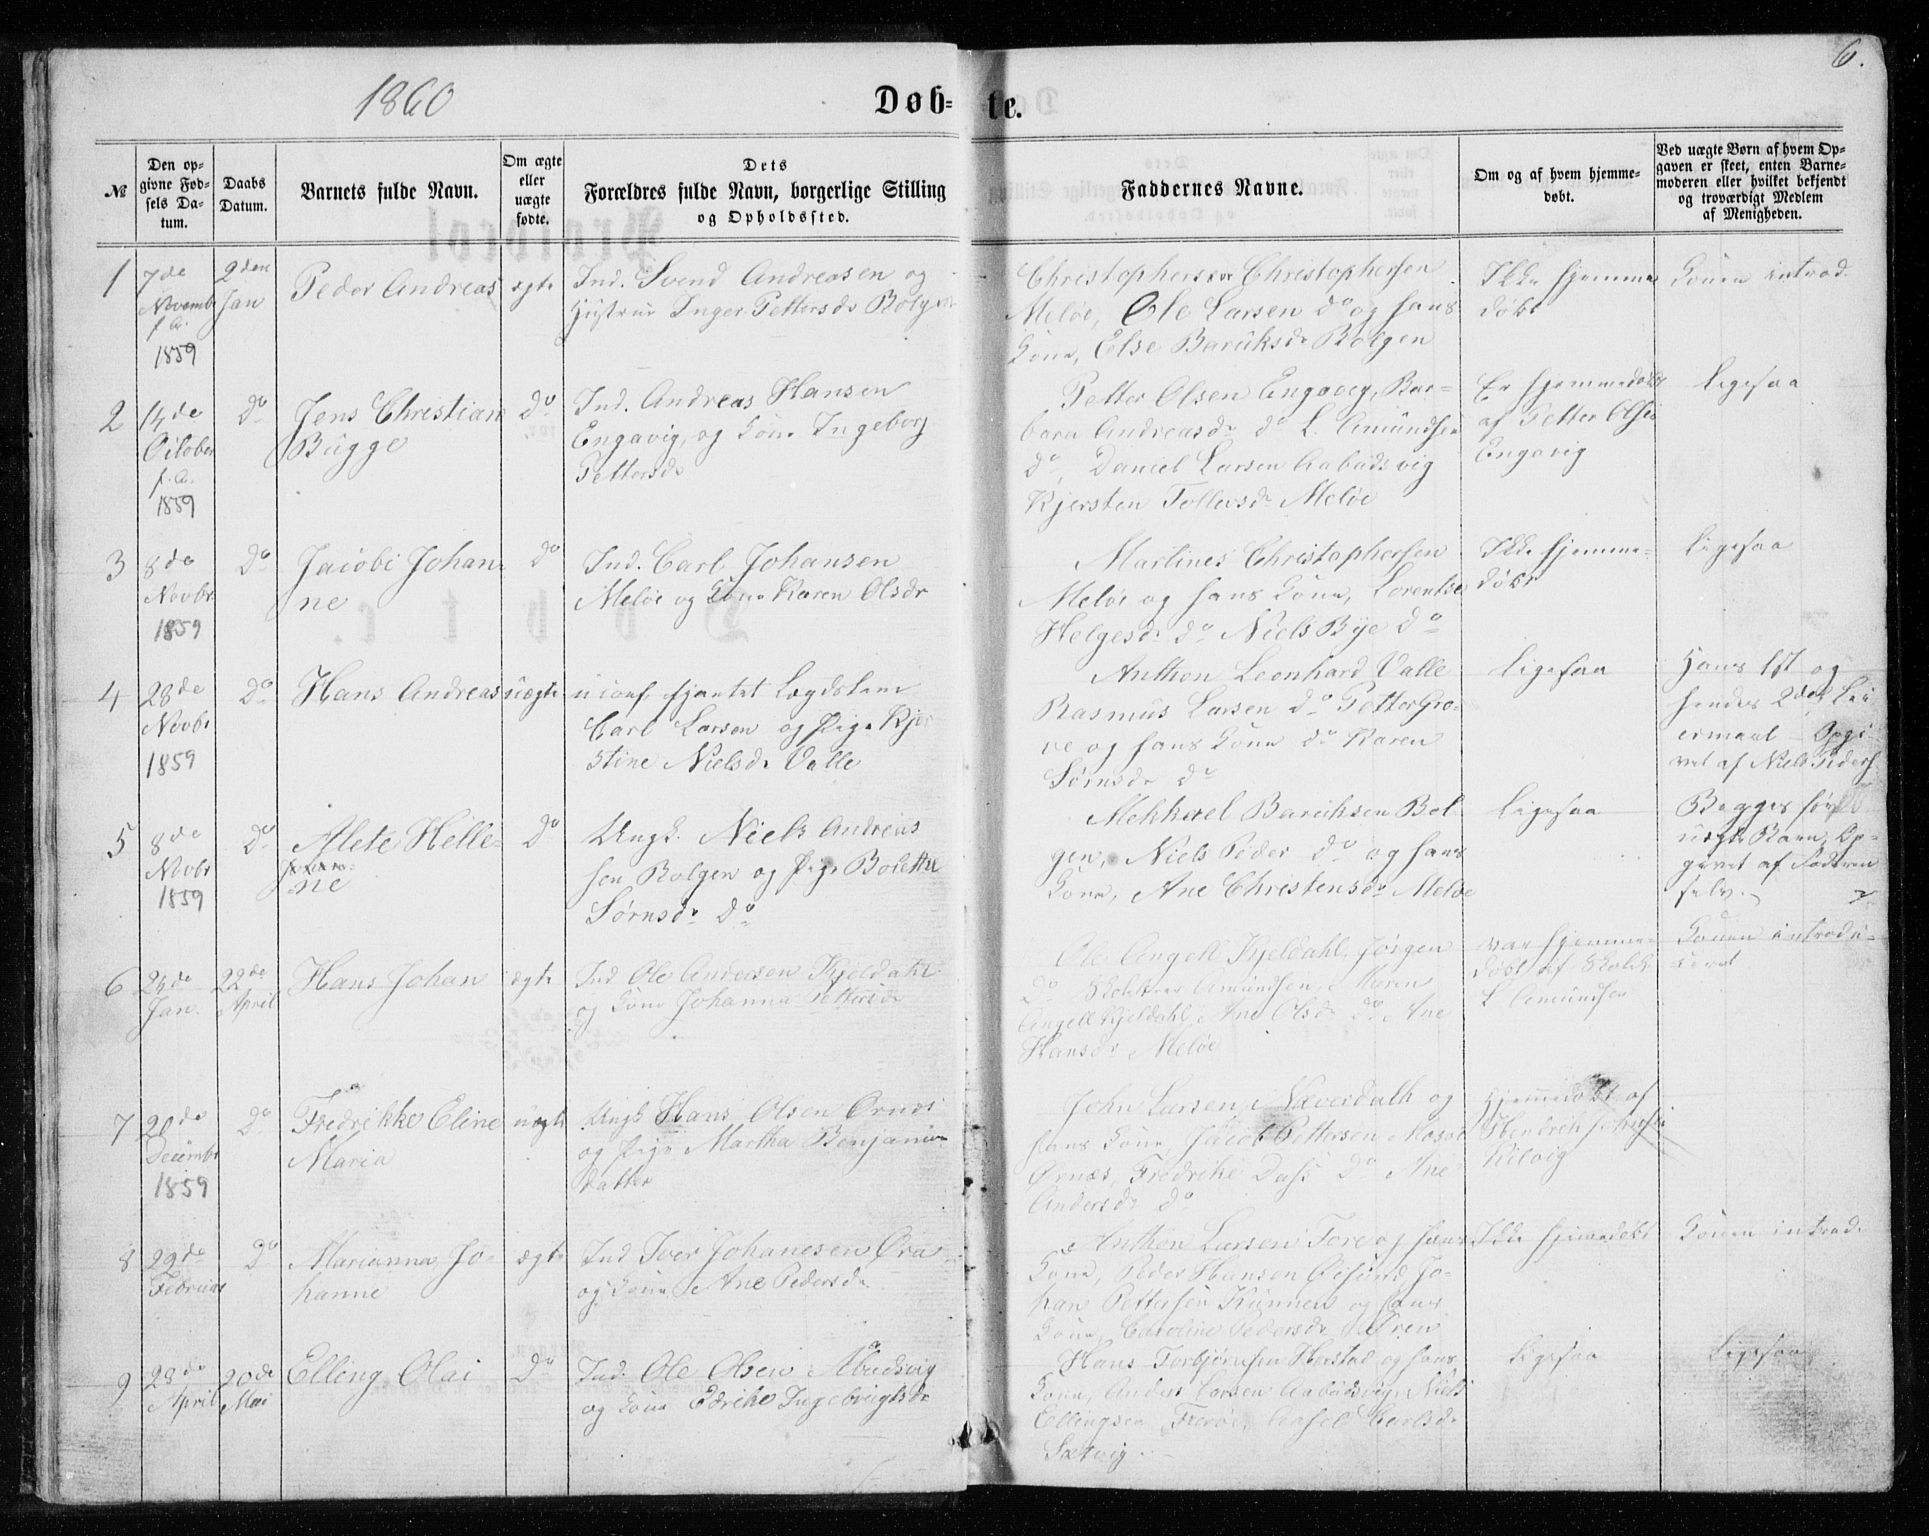 6.
1860
Døb-
te.
№
Den op-
givne Fød-
sels Da-
tum.
Daabs
Datum.
Barnets fulde Navn.
Om ægte
eller
uægte
fødte.
Dets
Forældres fulde Navn, borgerlige Stilling
og Opholdssted.
Faddernes Navne.
Om og af hvem hjemme-
døbt.
Ved uægte Børn af hvem Op-
gaven er skeet, enten Barne-
moderen eller hvilket bekjendt
og troværdigt Medlem
af Menigheden.
1
7de
Novemb
f. A.
1859
9den
Jan
Peder Andreas
ægte
Ind. Svend Andreasen og
Hustrue Inger Pettersdr Bolgen
Christophersen
Meløe, Ole Larsen do og hans
Kone, Else Baruksdr Bolgen
Ikke hjemme
døbt
Konen introd.
2
14de
October
f. A.
1859
Do
Jens Christian
Bugge
Do
Ind. Andreas Hansen
Engavig, og Kone Ingeborg
Pettersdr
Petter Olsen Engavig, Bar-
bara Andreasdr do L. Amundsen
do, Daniel Larsen Aabudsvig
Kjersten Tollevsdr Meløe
Er hjemmedøbt
af Petter Olsen
Engavig
Ligesaa
3
8de
Novbr
1859
Do
Jacobi Johan-
ne
Do
Ind. Carl Johansen
Meløe og Kone Karen Olsdr
Martines Christophersen
Meløe og hans Kone, Lorentse
Helgesdr do Niels Bye do
Ikke hjemme-
døbt
Ligesaa
4
28de
Novbr
1859
Do
Hans Andreas
uægte
uconf. tjentet Lægdslem
Carl Larsen og Pige Kjer
stine Nielsdr Valle
Anthon Leonhard Valle
Rasmus Larsen do Petter Gro-
ve og hans Kone do Karen
Sørnsdr do
Ligesaa
Hans 1st og
hendes 2det Lei
ermaal - Opgi-
vet af Niels Peders
5
8de
Novbr
1859
Do
Alete Helle-
ne
Do
Ungk. Niels Andreas
sen Bolgen og Pige Bolette
Sørnsdr do
Mekhael Baruksen Bol
gen, Niels Peder do og hans
Kone, Ane Christensdr Meløe
Ligesaa
Begges første
uægte Barn, Op-
givet af Faderen
selv.
6
26de
Jan.
22de
April
Hans Johan
ægte
Ind Ole Andersen Kjeldahl
og Kone Johanna Pettersdr
Ole Angell Kjeldahl, Jørgen
do Amundsen, Maren
Angell Kjeldahl, Ane Olsdr do Ane
Hansdr Meløe
var hjemme-
døbt af Skolel.
L Amundsen
Konen introdu-
ceret
7
20de
Decembr
1859
Do
Fredrikke Eline
Maria
uægte
Ungk Hans Olsen Ørnes
og Pige Martha Benjamin
datter
John Larsen Næverdalh og
hans Kone, Jacob Pettersen Mosvol
Ørnes, Fredrike Dass do Ane
Andersdr do
Hjemmedøbt af
Hendrek
Kilvig
8
29de
Februar
Do
Marianna Jo-
hanne
ægte
Ind Iver Johanesen Øra
og Kone Ane Pedersdr
Anthon Larsen Tore og hans
Kone, Peder Hansen Øesund, Jo-
han Pettersen Kunnen og hans
Kone, Caroline Pedersdr Øren
Ikke hjemedøbt
Konen introd.
9
28de
April
20de
Mai
Elling Olai
Do
Ind. Ole Olsen Abudsvig
og Kone Edrike Ingebrigtsdr
Hans Torbjørnsen Herstad og hans
Kone, Anders Larsen Aabudsvig, Niels
Ellingsen Carlsdr
Sætvig
Ligesaa
Ligesaa